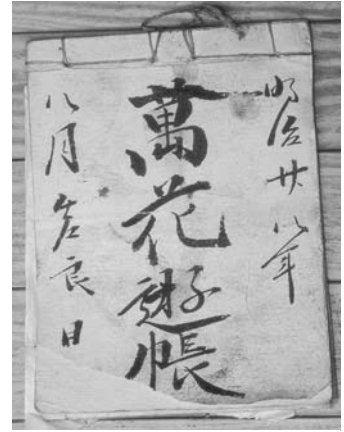 明治廿八年
萬花遊帳
八月吉良日